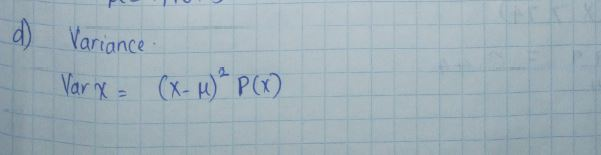 d) Variance.
Var x = (x - μ)² P(x)